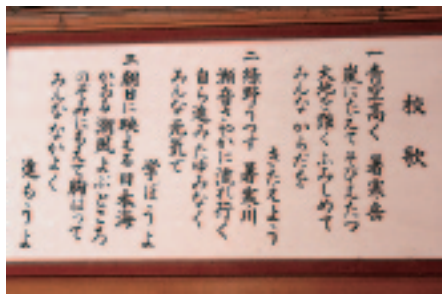 校歌
一 青空高く 暑寒岳
嵐にたえて そびえたつ
大地を強く ふみしめて
みんな からだを
きたえよう
二 緑野うつす 暑寒川
瀬音さやかに 流れ行く
自ら進み たゆみなく
みんな 元気で
学ぼうよ
三 朝日に映える 日本海
かおる潮風 よぶところ
のぞみにもえて 胸はって
みんな なかよく
進もうよ